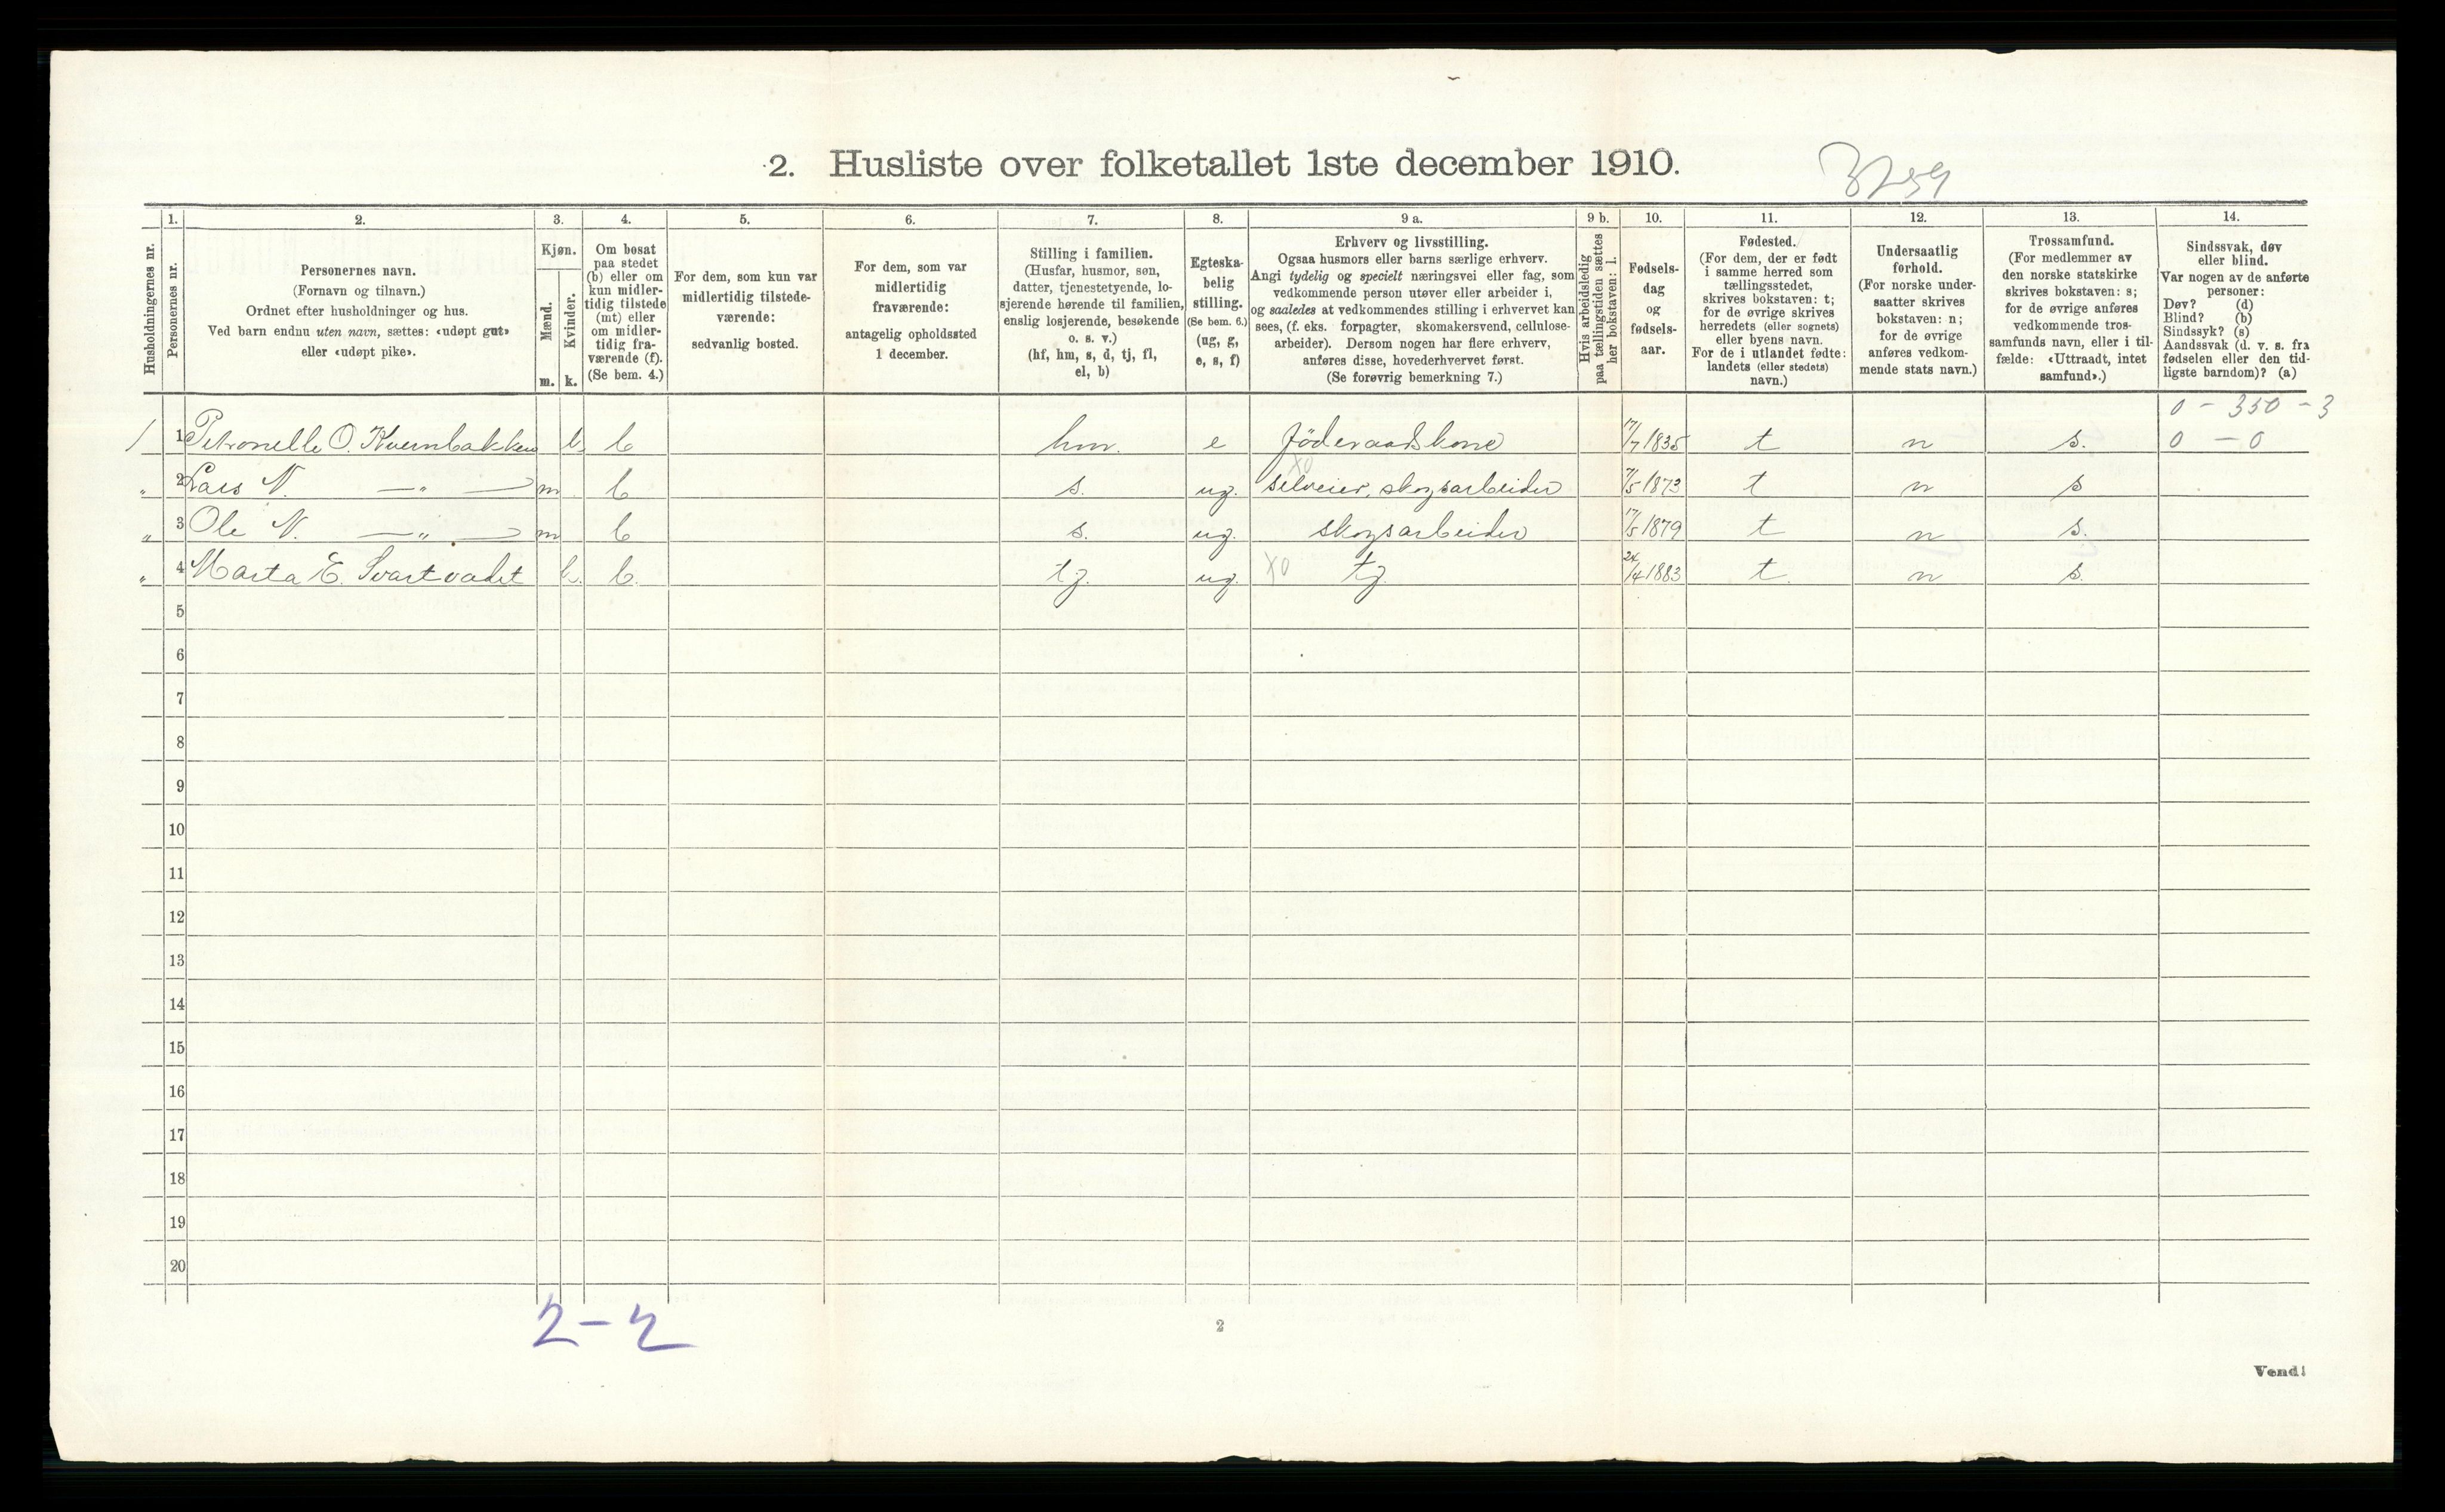 2. Husliste over folketallet 1ste december 1910.
3259
Husholdningernes nr.
1.
Personernes nr.
2.
Personernes navn.
(Fornavn og tilnavn.)
Ordnet efter husholdninger og hus.
Ved barn endnu uten navn, sættes: «udøpt gut»
eller «udøpt pike».
3.
Kjøn.
Mænd.
Kvinder.
m. k.
4.
Om bosat
paa stedet
(b) eller om
kun midler-
tidig tilstede
(mt) eller
om midler-
tidig fra-
værende (f).
(Se bem. 4.)
5.
For dem, som kun var
midlertidig tilstede-
værende:
sedvanlig bosted.
6.
For dem, som var
midlertidig
fraværende:
antagelig opholdssted
1 december.
7.
Stilling i familien.
(Husfar, husmor, søn,
datter, tjenestetyende, lo-
sjerende hørende til familien,
enslig losjerende, besøkende
o. s. v.)
(hf, hm, s, d, tj, fl,
el, b)
8.
Egteska-
belig
stilling.
(Se bem. 6.)
(ug, g,
e, s, f)
9 a.
Erhverv og livsstilling.
Ogsaa husmors eller barns særlige erhverv.
Angi tydelig og specielt næringsvei eller fag, som
vedkommende person utøver eller arbeider i,
og saaledes at vedkommendes stilling i erhvervet kan
sees, (f. eks. forpagter, skomakersvend, cellulose-
arbeider). Dersom nogen har flere erhverv,
anføres disse, hovederhvervet først.
(Se forøvrig bemerkning 7.)
9 b.
Hvis arbeidsledig
paa tællingstiden sættes
her bokstaven: l.
10.
Fødsels-
dag
og
fødsels-
aar.
11.
Fødested.
(For dem, der er født
i samme herred som
tællingsstedet,
skrives bokstaven: t;
for de øvrige skrives
herredets (eller sognets)
eller byens navn.
For de i utlandet fødte:
landets (eller stedets)
navn.)
12.
Undersaatlig
forhold.
(For norske under-
saatter skrives
bokstaven: n;
for de øvrige
anføres vedkom-
mende stats navn.)
13.
Trossamfund.
(For medlemmer av
den norske statskirke
skrives bokstaven: s;
for de øvrige anføres
vedkommende tros-
samfunds navn, eller i til-
fælde: «Uttraadt, intet
samfund».)
14.
Sindssvak, døv
eller blind.
Var nogen av de anførte
personer:
Døv? (d)
Blind? (b)
Sindssyk? (s)
Aandssvak (d. v. s. fra
fødselen eller den tid-
ligste barndom)? (a)
0 - 350 - 3
1 1 Petronelle O. Kvernbakken k. b hm. e föderaadskone 17/7 1835 t n s. 0 - 0
" 2 Lars N. —"— m b s. ug. selveier, skogsarbeider 7/5 1873 t n s
XO
" 3 Ole N. —"— m b s. ug. skogsarbeider 17/5 1879 t n s.
" 4 Marta E. Svartvadet k. b. tj. ug. XO tj. 24/4 1883 t. n s.
5
6
7
8
9
10
11
12
13
14
15
16
17
18
19
20
2 - 2
2
Vend!